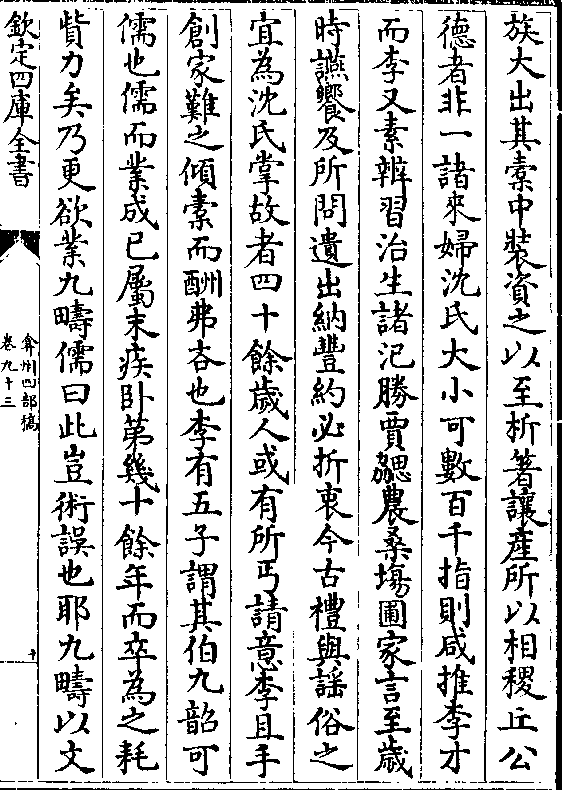 族大出其橐中裝資之以至析箸讓産所以相稷丘公
德者非一諸來婦沈氏大小可數百千指則咸推李才
而李又素辨習治生諸汜勝賈勰農桑塲圃家言至歳
時讌饗及所問遺出納豐約必折衷今古禮與謡俗之
宜為沈氏掌故者四十餘歳人或有所丐請意李且手
創家難之傾橐而酬弗吝也李有五子謂其伯九韶可
儒也儒而業成已屬末疾卧第幾十餘年而卒為之耗
貲力矣乃更欲業九疇儒曰此豈術誤也耶九疇以文
欽定四庫全書
弇州四部稿
卷九十三
十